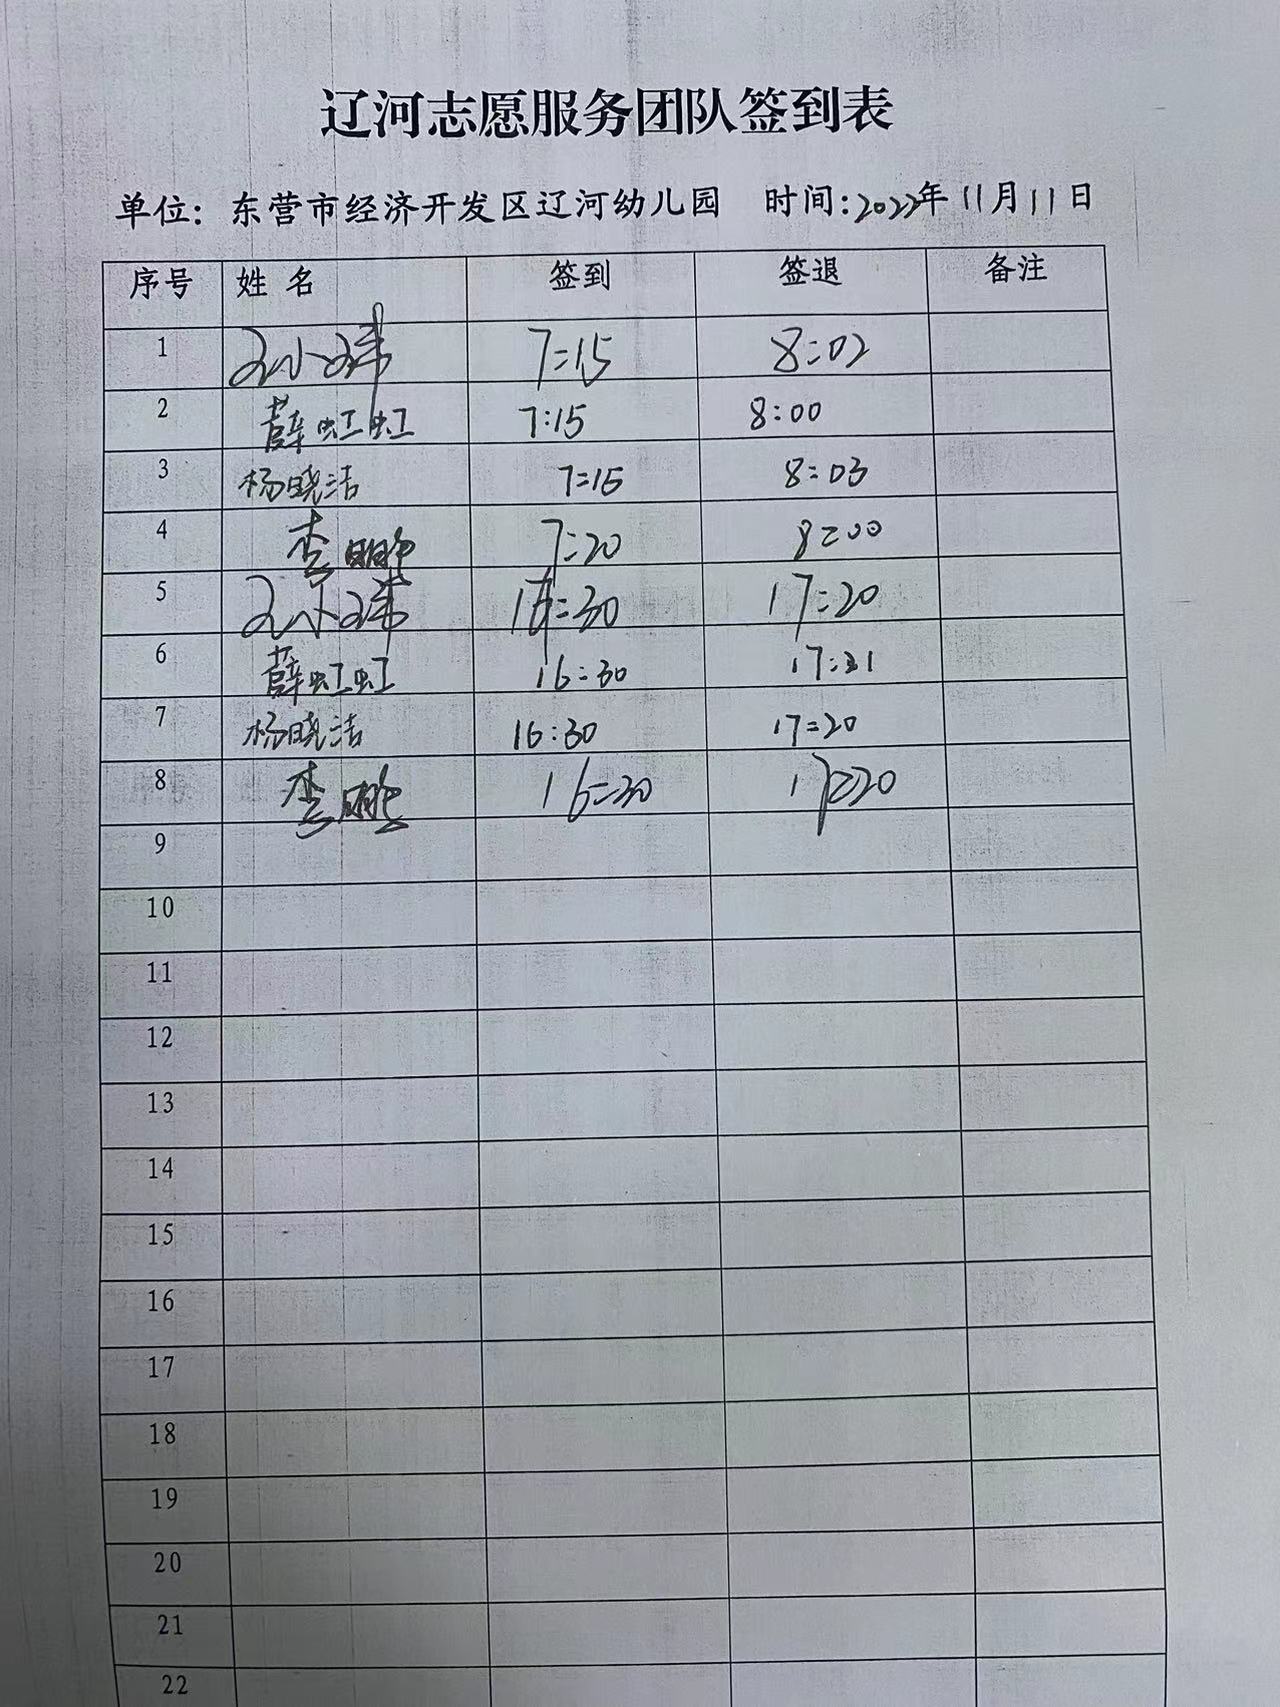 辽河志愿服务团队签到表
单位：东营市经济开发区辽河幼儿园 时间:2022年11月11日
序号 姓 名 签到 签退 备注
1 7:15 8:02
2 薛虹虹 7:15 8:00
3 杨晓洁 7:15 8:03
4 李 7:20 8:00
5 16:30 17:20
6 薛虹虹 16:30 17:21
7 杨晓洁 16:30 17:20
8 李 16:30 17:20
9
10
11
12
13
14
15
16
17
18
19
20
21
22